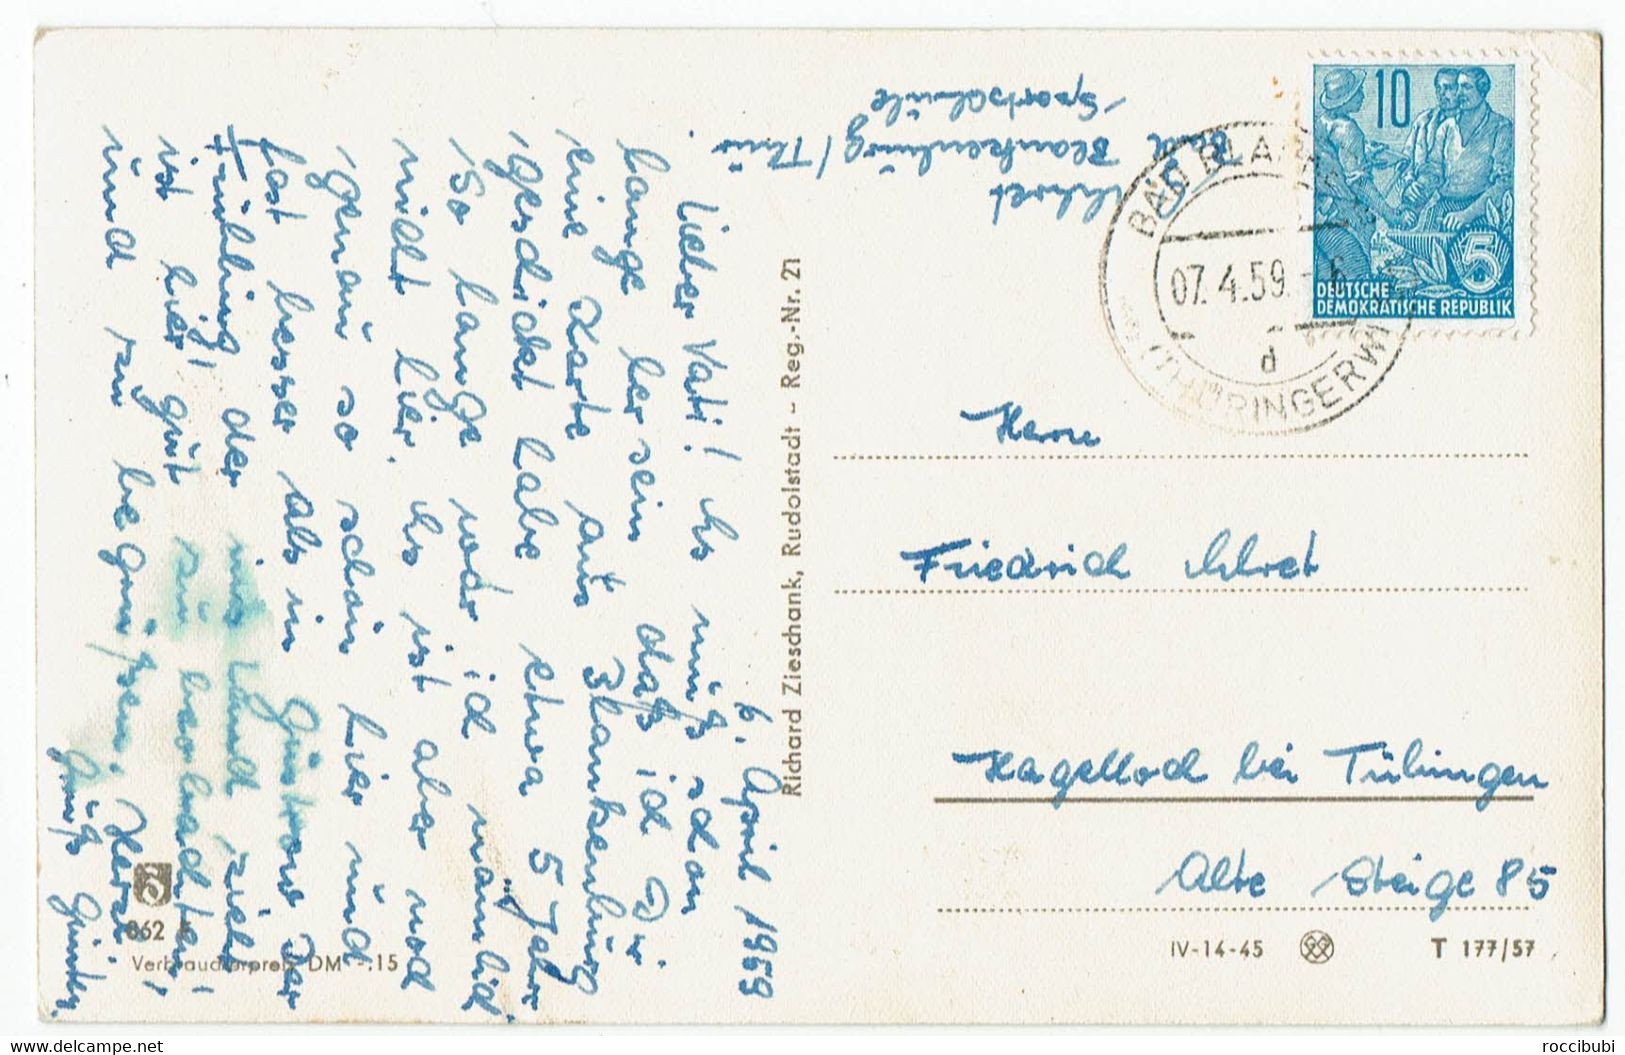 6. April 1959
Lieber Vati! Es muß schon
lange her sein daß ich Dir
eine Karte aus Blankenburg
geschickt habe etwa 5 Jahr
so lange war ich nämlich
nicht hier. Es ist aber noch
genau so schön hier und
fast besser als in Güstrow. Der
Frühling, der ins Land zieht
ist hier gut zu beobachten
und zu begrüßen. Herzl.
Gruß Günter.
Ehret
Bad
Blankenburg/Thür
Sportschule
10
5
DEUTSCHE
DEMOKRATISCHE REPUBLIK
BAD BLA
07.4.59.-6
d
(THÜRINGERW
Richard Zieschank, Rudolstadt - Reg.-Nr. 21
Herrn
Friedrich Ehret
Hagelloch bei Tübingen
Alte Steige 85
862
Verbraucherpreis DM -.15
IV-14-45
T 177/57
delcampe.net
roccibubi